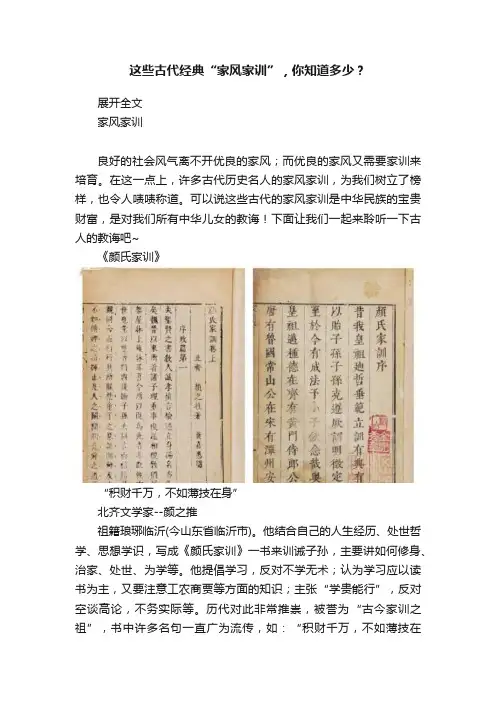 这些古代经典“家风家训”，你知道多少？
展开全文
家风家训
良好的社会风气离不开优良的家风；而优良的家风又需要家训来
培育。在这一点上，许多古代历史名人的家风家训，为我们树立了榜
样，也令人啧啧称道。可以说这些古代的家风家训是中华民族的宝贵
财富，是对我们所有中华儿女的教诲！下面让我们一起来聆听一下古
人的教诲吧~
《颜氏家训》
顏氏家訓序
昔我皇祖迪哲垂範立訓有典有
以貽子孫子孫克遵厥訓明徵定
至於今有成法予
皇祖邁種德在齊有黃門侍郎公
唐有魯國常山公在宋有潭州安
氏家訓卷上
序致篇第一
“积财千万，不如薄技在身”
北齐文学家--颜之推
祖籍琅琊临沂(今山东省临沂市)。他结合自己的人生经历、处世哲
学、思想学识，写成《颜氏家训》一书来训诫子孙，主要讲如何修身、
治家、处世、为学等。他提倡学习，反对不学无术；认为学习应以读
书为主，又要注意工农商贾等方面的知识；主张“学贵能行”，反对
空谈高论，不务实际等。历代对此非常推崇，被誉为“古今家训之
祖”，书中许多名句一直广为流传，如：“积财千万，不如薄技在